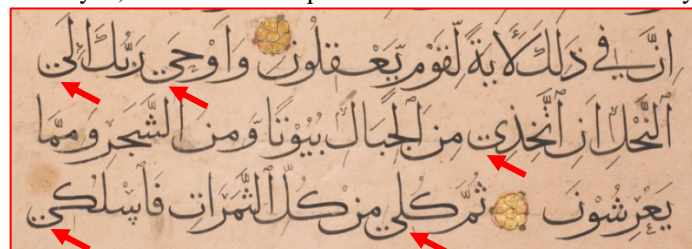 اِنَّ فِي ذٰلِكَ لَاٰيَةً لِّقَوْمٍ يَّعْقِلُوْنَ وَاَوْحٰي رَبُّكَ اِلَي
النَّحْلِ اَنِ اتَّخِذِي مِنَ الْجِبَالِ بُيُوْتًا وَّمِنَ الشَّجَرِ وَمِمَّا
يَعْرِشُوْنَ ثُمَّ كُلِي مِنْ كُلِّ الثَّمَرَاتِ فَاسْلُكِي